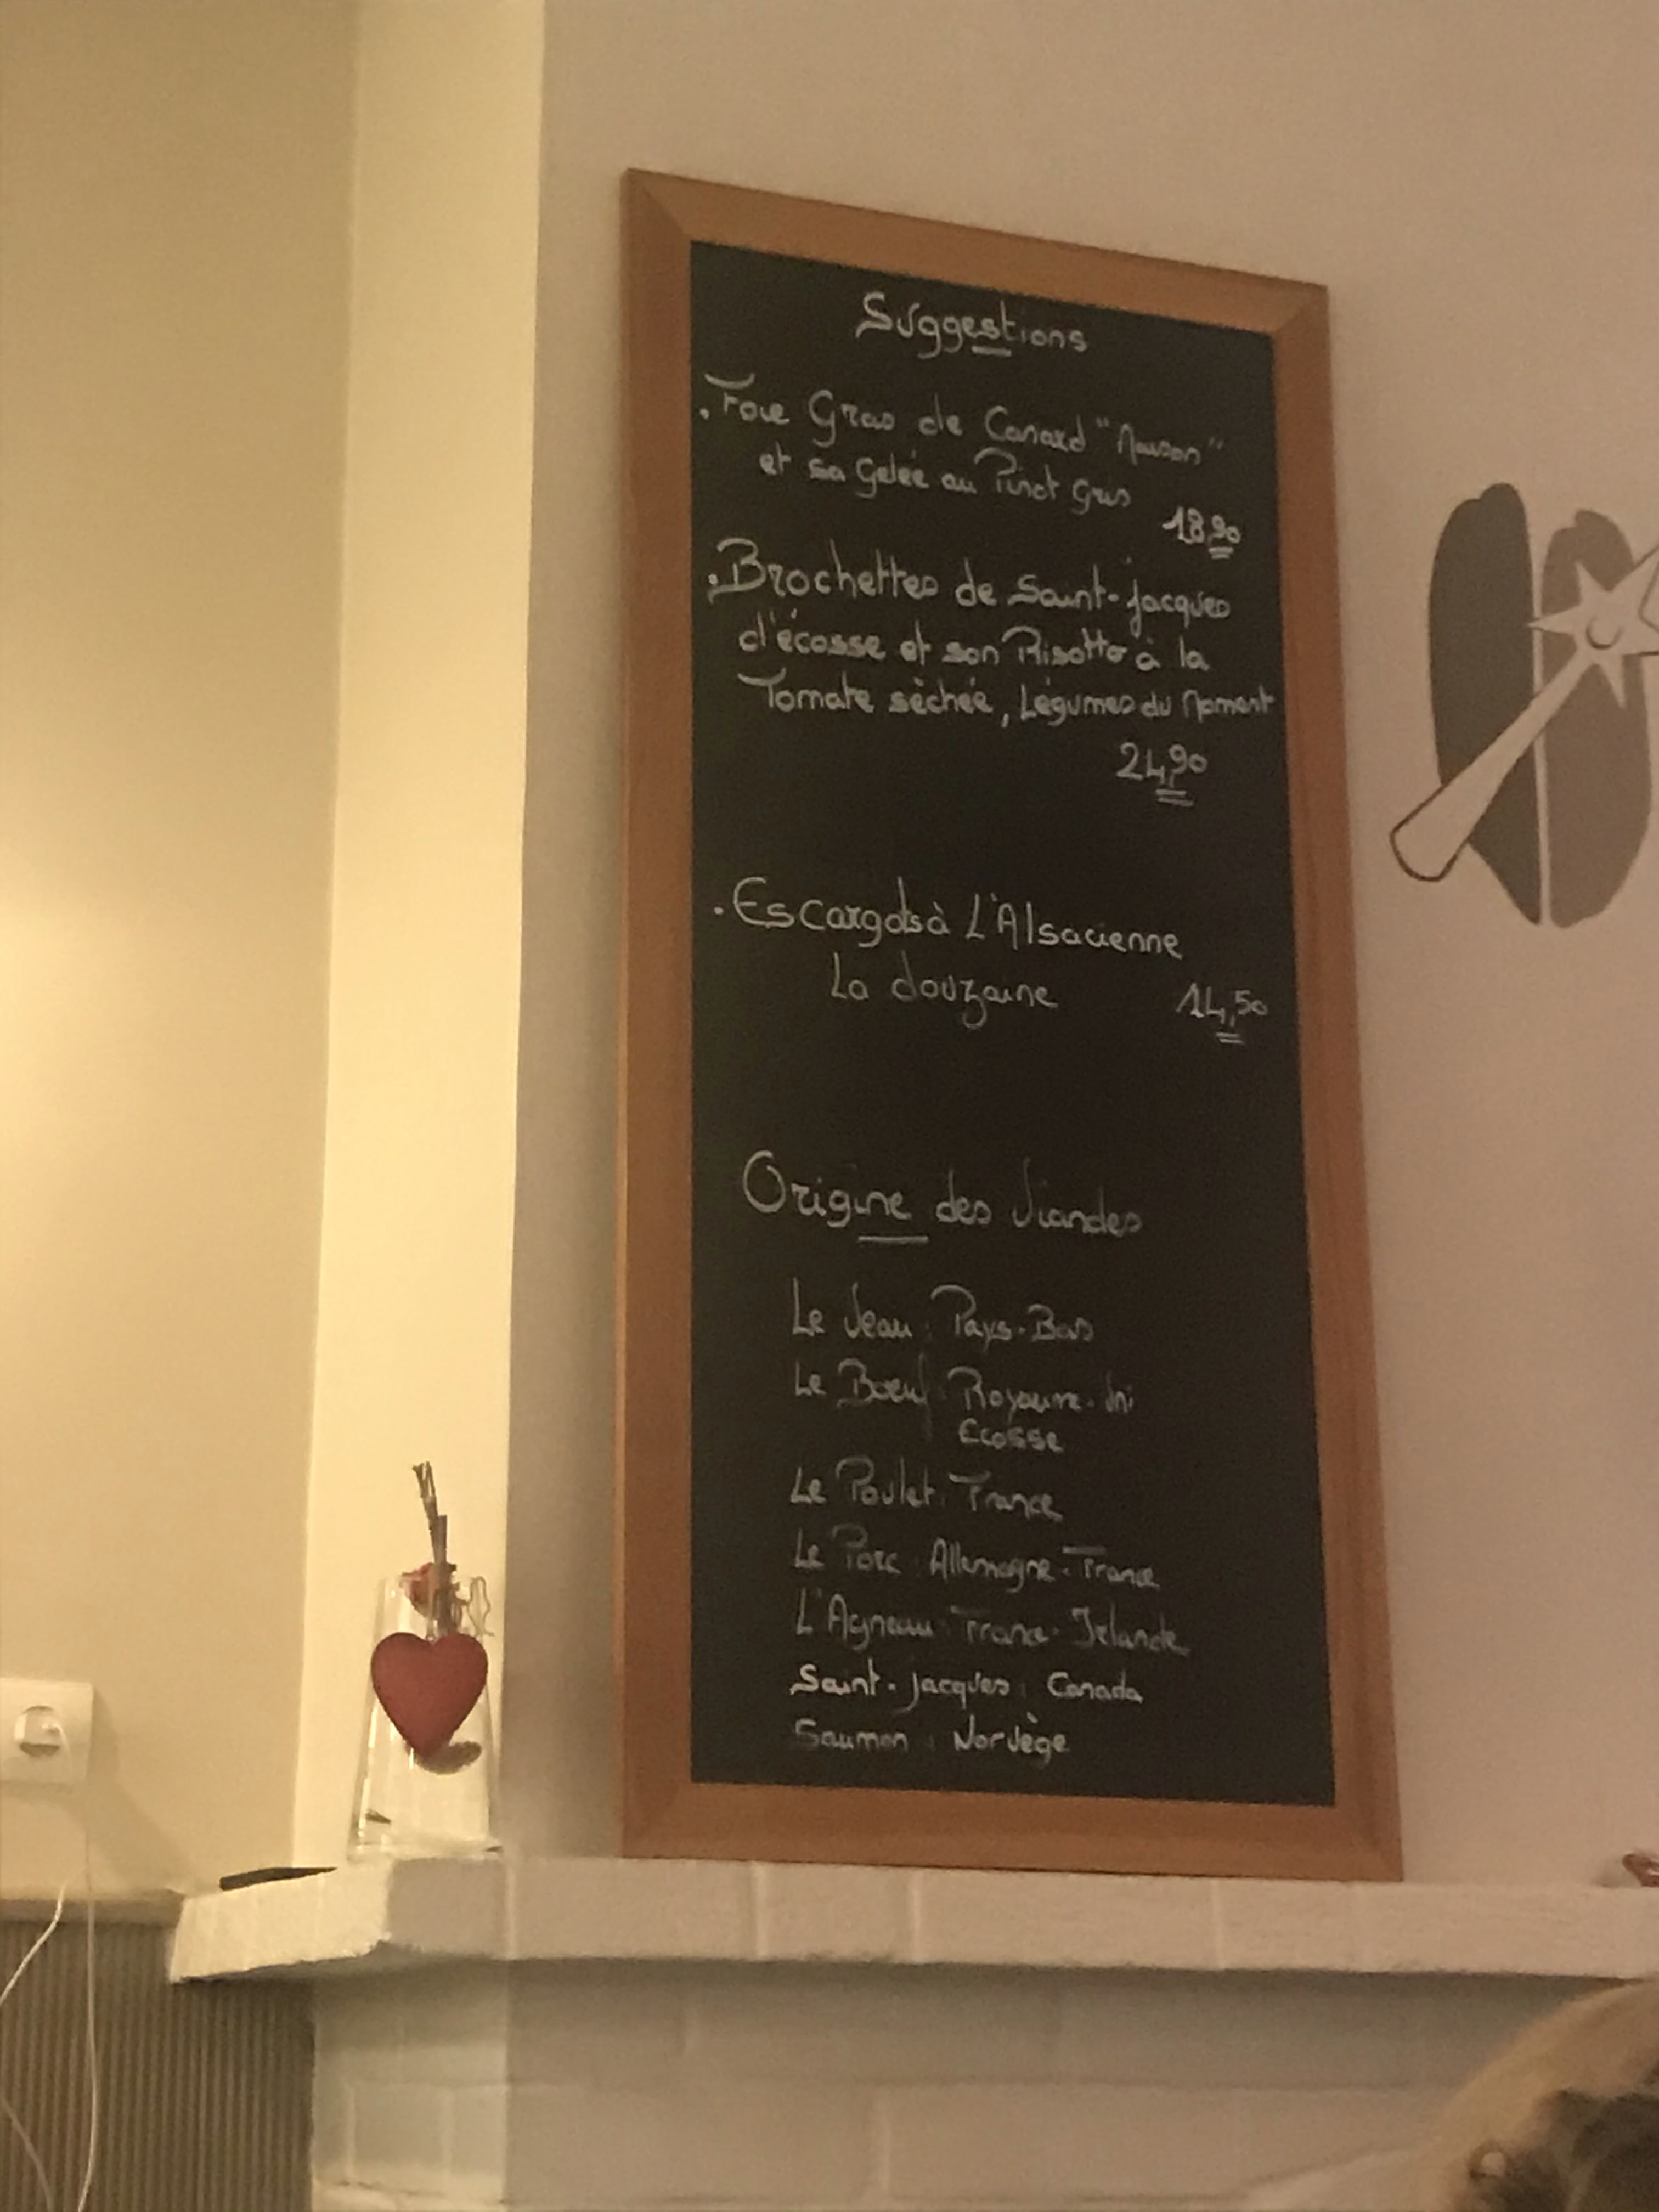 Suggestions
. Foie Gras de Canard "Maison"
et sa Gelée au Pinot Gris
18,90
. Brochettes de Saint-jacques
d'écosse et son Risotto à la
Tomate séchée, Légumes du Moment
24,90
. Escargots à L'Alsacienne
La douzaine 14,50
Origine des Viandes
Le Veau : Pays-Bas
Le Boeuf : Royaume-Uni
Ecosse
Le Poulet : France
Le Porc : Allemagne-France
L'Agneau : France-Irlande
Saint-jacques : Canada
Saumon : Norvège